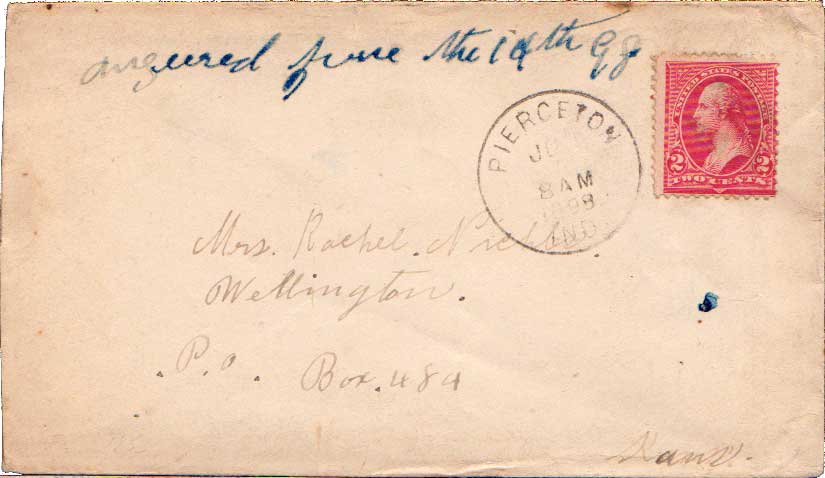 anzuered june the 14th 98
PIERCETON
8 AM
1898
IND.
UNITED STATES POSTAGE
2 2
TWO CENTS
Mrs. Rachel.
Wellington.
P.O. Box. 484
Kans.